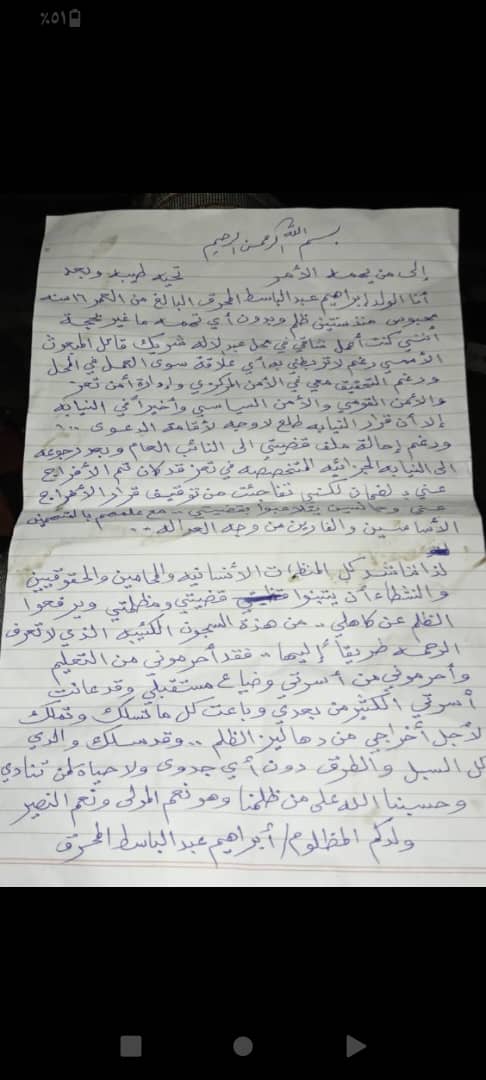 ٪٥١
بسم الله الرحمن الرحيم
إلى من يهمه الأمر تحيه طيبه وبعد
أنا الولد إبراهيم عبدالباسط المحرق البالغ من العمر ١٦ سنه
محبوس منذ سنتين ظلم وبدون أي تهمه ما غير بحجة
أنني كنت أعمل شاقي في محل عبدالاله شريك قاتل المبعوث
الأممي رغم لا تربطني به أي علاقة سوى العمل في المحل
ورغم التحقيق معي في الأمن المركزي وإدارة أمن تعز
والأمن القومي والأمن السياسي وأخيراً في النيابه
إلا أن قرار النيابه طلع لا وجه لأقامة الدعوى ...
ورغم إحالة ملف قضيتي الى النائب العام وبعد رجوعه
الى النيابه الجزائيه المتخصصه في تعز قد كان تم الأفراج
عني بضمان لكنني تفاجئت من توقيف قرار الأفراج
عني يتلاعبوا بقضيتي .. مع علمهم بالمتهمين
الأساسيين والفارين من وجه العداله ..
لذا أناشد كل المنظمات الأنسانيه والمحامين والحقوقيين
والنشطاء أن يتبنوا قضيتي ومظلمتي ويرفعوا
الظلم عن كاهلي .. من هذة السجون الكئيبه الذي لا تعرف
الرحمه طريقاً إليها .. فقد أحرموني من التعليم
وأحرموني من أسرتي وضياع مستقبلي وقد عانت
أسرتي الكثير من بعدي وباعت كل ما تملك
لأجل أخراجي من دهاليز الظلم .. وقد سلك والدي
كل السبل والطرق دون أي جدوى ولا حياة لمن تنادي
وحسبنا الله على من ظلمنا وهو نعم المولى ونعم النصير
ولدكم المظلوم / أبراهيم عبدالباسط المحرق